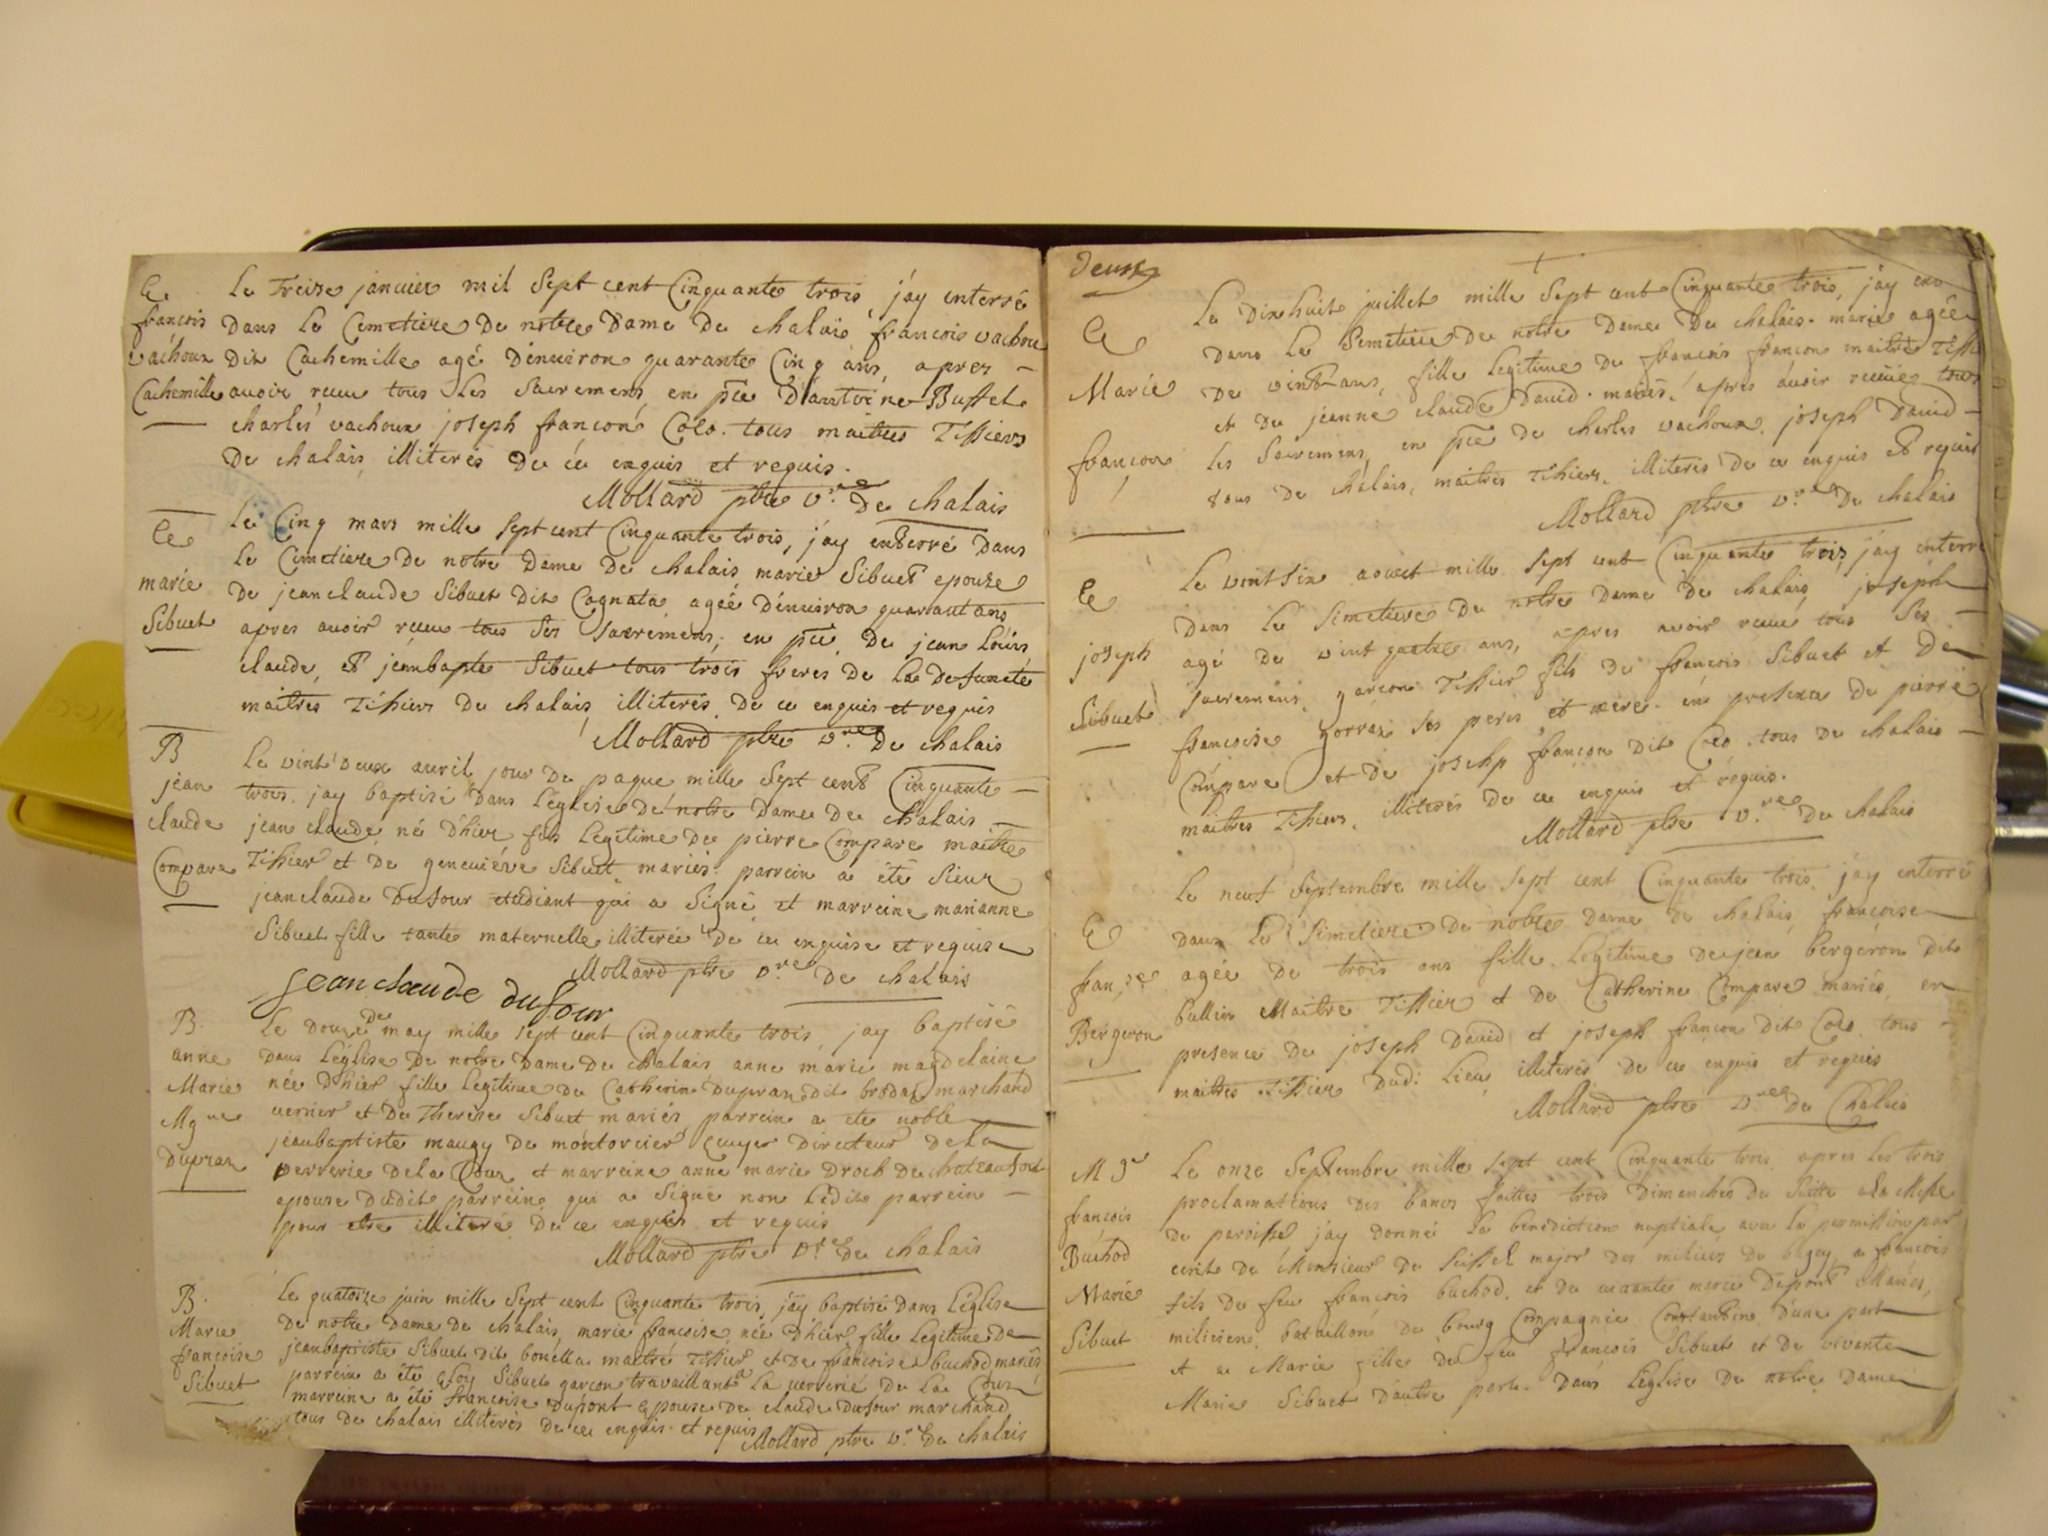 E. Le Treize janvier mil Sept cent Cinquante trois, j'ay enterré
françois dans Le Cemetiere De notre Dame De chalais françois vachoux
vachoux dit Cachemille agé D'environ quarante Cinq ans, apres
Cachemille avoir receu tous Les Sacremens, en pce D'antoine Buffet
charles vachoux joseph françon Colo. tous maitres Tissiers
De chalais illiterés De ce enquis et requis.
Mollard ptre v.re De chalais
E Le Cinq mars mille sept cent Cinquante trois, j'ay enterré Dans
Le Cimetiere De notre Dame De chalais marie Sibuet epouse
marie De jean claude Sibuet Dit Cagnata, agée D'environ quarant ans
Sibuet apres avoir receu tous Ses Sacremens, en pce De jean Louis
claude, et jeanbapte Sibuet tous trois freres De La Defuncte
maitres Tissiers De chalais, illiterés De ce enquis et requis
Mollard ptre v.re De chalais
B Le vint Deux avril jour De paque mille Sept cent Cinquante
jean trois jay baptisé Dans L'église De notre Dame De chalais
claude jean claude né D'hier fils Legitime De pierre Compare maitre
Compare Tissier et De geneviéve Sibuet mariés. parrein a été Sieur
jeanclaude Dufour etudiant qui a Signé et marreine marianne
Sibuet fille tante maternelle illiterée De ce enquise et requise
Mollard ptre v.re De chalais
jean claude dufour
B. Le douze De may mille sept cent Cinquante trois, jay baptisé
anne Dans L'église De notre Dame De chalais anne marie magdelaine
Marie née D'hier fille Legitime De Catherin Dupraz Dit brodat marchand
Mgne verrier et De Therese Sibuet mariés, parrein a ete noble
jeanbaptiste maugy De montorcier Ecuyer Directeur De La
Dupraz verrerie De La Cour et marreine anne marie Droch De chateaufort
epouse Dudit parrein qui a Signé non Ledit parrein
pour etre illiteré De ce enquis et requis
Mollard ptre v.re De chalais
B. Le quatorze juin mille Sept cent Cinquante trois, j'ay baptisé Dans L'église
Marie De notre Dame De chalais, marie françoise née D'hier fille Legitime De
françoise jeanbaptiste Sibuet dit bouella maitre Tissier et De françoise buchod mariés,
Sibuet parrein a été Eloy Sibuet garçon travaillant a La verrerie De La Cour
marreine a été françoise Dupont epouse De claude Dufour marchand
tous De chalais illiterés De ce enquis et requis
Mollard ptre v.re De chalais
Deux
Le Dixhuit juillet mille Sept cent Cinquante trois, j'ay en
E Dans Le Semetiere De notre Dame De chalais marie agée
Marie De vint ans, fille Legitime De françois françon maitre Tissi
et De jeanne claude David mariés, apres avoir receüe tous
françon Les Sacremens, en pce De charles vachoux, joseph David
tous De chalais, maitres Tissiers, illiterés De ce enquis et requis
Mollard ptre v.re De chalais
E Le vint Six aoüet mille Sept cent Cinquante trois, j'ay interré
Dans Le Simetiere De notre Dame De chalais, joseph
joseph agé De vint quatre ans, apres avoir receu tous Ses
Sibuet Sacremens, garçon Tissier fils De françois Sibuet et De
françoise Ses peres et mere. en presence De pierre
Compare et De josehp françon Dit Colo. tous De chalais
maitres Tissiers, illiterés De ce enquis et requis.
Mollard ptre v.re De chalais
Le neuf Septembre mille Sept cent Cinquante trois, j'ay enterré
E Dans Le Simetiere De notre Dame De chalais, françoise
fran.se agée De trois ans fille Legitime De jean bergéron Dit
Bergeron bullin Maitre Tissier et De Catherine Compare mariés, en
presence De joseph David et joseph françon Dit Colo tous
maitres Tissier Dudi Lieu, illiterés De ce enquis et requis
Mollard ptre v.re De Chalais
M ge Le onze Septembre mille sept cent Cinquante trois apres Les trois
françois proclamations Des bancs faittes trois Dimanches De Suitte a La Messe
Buchod De paroisse j'ay Donné La benediction nuptiale avec La permission par
Marie ecrit De Monsieur De Seissel major Des milices Du bugey, a françois
Sibuet fils De feu françois buchod, et De vivante marie Dupont Mariés,
milicien bataillon De bourg Compagnie Constantin D'une part
et a Marie fille De feu françois Sibuet et De vivante
Marie Sibuet D'autre part. Dans L'église De notre Dame